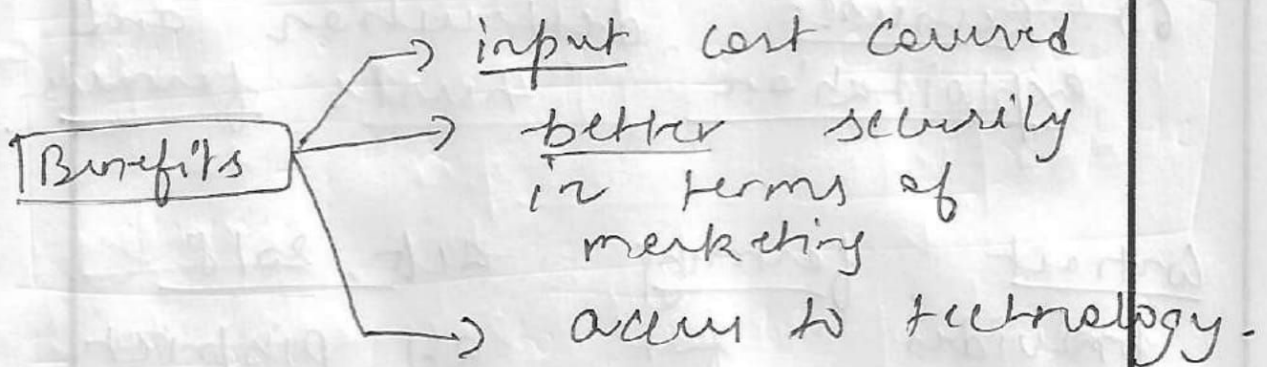 Benefits
→ input cost covered
→ better security
in terms of
marketing
→ access to technology.